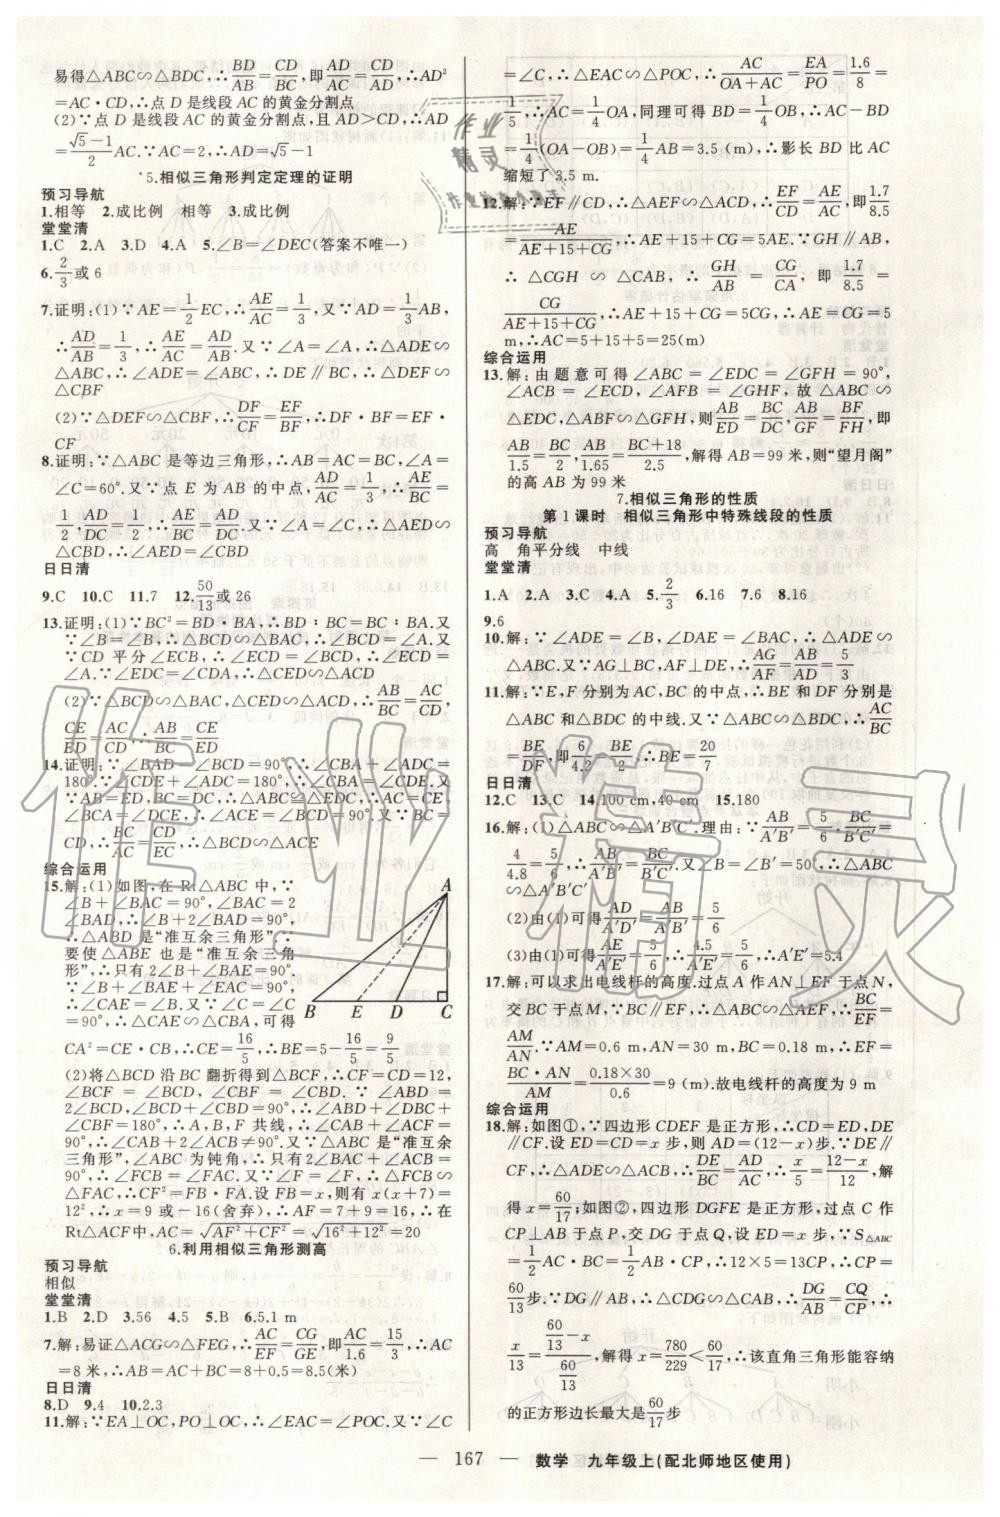 易得△ABC∽△BDC,∴BD/AB=CD/BC,即AD/AC=CD/AD,∴AD²
=AC·CD,∴点D是线段AC的黄金分割点
(2)∵点D是线段AC的黄金分割点,且AD>CD,∴AD
=(√5-1)/2 AC.∵AC=2,∴AD=√5-1
*5.相似三角形判定定理的证明
预习导航
1.相等 2.成比例 相等 3.成比例
堂堂清
1.C 2.A 3.D 4.A 5.∠B=∠DEC(答案不唯一)
6.2/3或6
7.证明:(1)∵AE=1/2EC,∴AE/AC=1/3,又∵AD=1/3AB,
∴AD/AB=1/3,∴AD/AB=AE/AC.又∵∠A=∠A,∴△ADE∽
△ABC,∴∠ADE=∠ABC,∴DE∥BC,∴△DEF∽
△CBF
(2)∵△DEF∽△CBF,∴DF/CF=EF/BF,∴DF·BF=EF·
CF
8.证明:∵△ABC是等边三角形,∴AB=AC=BC,∠A=
∠C=60°.又∵点E为AB的中点,AD/DC=1/2,∴AE/BC=
1/2,AD/DC=1/2,∴AE/BC=AD/DC.又∵∠A=∠C=60°,
∴△AED∽△CBD
日日清
9.C 10.C 11.7 12.50/13或26
13.证明:(1)∵BC²=BD·BA,∴BD∶BC=BC∶BA.又
∵∠B=∠B,∴△BCD∽△BAC,∴∠BCD=∠A.又
∵CD平分∠ECB,∴∠ECD=∠BCD,∴∠ECD=
∠A.∵∠EDC=∠CDA,∴△CED∽△ACD
(2)∵△BCD∽△BAC,△CED∽△ACD,∴AB/BC=AC/CD,
CE/ED=AC/CD,∴AB/BC=CE/ED
14.证明:∵∠BAD=∠BCD=90°,∴∠CBA+∠ADC=
180°.∵∠CDE+∠ADC=180°,∴∠CBA=∠CDE.又
∵AB=ED,BC=DC,∴△ABC≌△EDC,∴AC=CE,
∠BCA=∠DCE,∴∠ACE=∠BCD=90°.又∵AC=CE,BC
=DC,∴BC/AC=CD/CE,∴△BCD∽△ACE
综合运用
15.解:(1)如图,在Rt△ABC中,∵
∠B+∠BAC=90°,∠BAC=2
∠BAD,∴∠B+2∠BAD=90°,
∴△ABD是“准互余三角形”∵
要使△ABE也是“准互余三角
形”,∴只有2∠B+∠BAE=90°.
∵∠B+∠BAE+∠EAC=90°,
∴∠CAE=∠B.又∵∠C=∠C
=90°,∴△CAE∽△CBA,可得
CA²=CE·CB,∴CE=16/5,∴BE=5-16/5=9/5
A
B E D C
(2)将△BCD沿BC翻折得到△BCF,∴CF=CD=12,
∠BCF=∠BCD,∠CBF=∠CBD.∵∠ABD=2
∠BCD,∠BCD+∠CBD=90°,∴∠ABD+∠DBC+
∠CBF=180°,∴A,B,F共线,∴∠CAB+∠ACF=
90°,∴∠CAB+2∠ACB≠90°.又∵△ABC是“准互余
三角形”,∠ABC为钝角,∴只有2∠ACB+∠CAB=
90°,∴∠FCB=∠FAC.又∵∠F=∠F,∴△FCB∽
△FAC,∴CF²=FB·FA.设FB=x,则有x(x+7)=
12²,∴x=9或-16(舍弃),∴AF=7+9=16,∴在
Rt△ACF中,AC=√(AF²+CF²)=√(16²+12²)=20
6.利用相似三角形测高
预习导航
相似
堂堂清
1.B 2.D 3.56 4.5 5.B 6.5.1 m
7.解:易证△ACG∽△FEG,∴AC/EF=CG/GE,即AC/1.6=15/3,∴AC
=8米,∴AB=AC+BC=8+0.5=8.5(米)
日日清
8.D 9.4 10.2.3
11.解:∵EA⊥OC,PO⊥OC,∴∠EAC=∠POC.又∵∠C
=∠C,∴△EAC∽△POC,∴AC/(OA+AC)=EA/PO=1.6/8=
1/5,∴AC=1/4OA,同理可得BD=1/4OB,∴AC-BD
=1/4(OA-OB)=1/4AB=3.5(m),∴影长BD比AC
缩短了3.5 m.
12.解:∵EF∥CD,∴△AEF∽△ACD,∴EF/CD=AE/AC,即1.7/8.5
=AE/(AE+15+CG),∴AE+15+CG=5AE.∵GH∥AB,
∴△CGH∽△CAB,∴GH/AB=CG/CA,即1.7/8.5=
CG/(AE+15+CG),∴AE+15+CG=5CG,∴AE=CG=5
m,∴AC=5+15+5=25(m)
综合运用
13.解:由题意可得∠ABC=∠EDC=∠GFH=90°,
∠ACB=∠ECD,∠AFB=∠GHF,故△ABC∽
△EDC,△ABF∽△GFH,则AB/ED=BC/DC,AB/GF=BF/FH,即
AB/1.5=BC/2,AB/1.65=(BC+18)/2.5,解得AB=99米,则“望月阁”
的高AB为99米
7.相似三角形的性质
第1课时 相似三角形中特殊线段的性质
预习导航
高 角平分线 中线
堂堂清
1.A 2.A 3.C 4.A 5.2/3 6.16 7.6 8.16
9.6
10.解:∵∠ADE=∠B,∠DAE=∠BAC,∴△ADE∽
△ABC.又∵AG⊥BC,AF⊥DE,∴AG/AF=AB/AD=5/3
11.解:∵E,F分别为AC,BC的中点,∴BE和DF分别是
△ABC和△BDC的中线.又∵△ABC∽△BDC,∴AC/BC
=BE/DF,即6/4.2=BE/2,∴BE=20/7
日日清
12.C 13.C 14.100 cm,40 cm 15.180
16.解:(1)△ABC∽△A′B′C′.理由:∵AB/A′B′=5/6,BC/B′C′=
4/4.8=5/6,∴AB/A′B′=BC/B′C′.又∵∠B=∠B′=50°,∴△ABC
∽△A′B′C′
(2)由(1)可得AD/A′D′=AB/A′B′=5/6
(3)由(1)可得AE/A′E′=5/6,∴4.5/A′E′=5/6,∴A′E′=5.4
17.解:可以求出电线杆的高度.过点A作AN⊥EF于点N,
交BC于点M,∵BC∥EF,∴△ABC∽△AEF,∴BC/EF=
AM/AN.∵AM=0.6 m,AN=30 m,BC=0.18 m,∴EF=
BC·AN/AM=0.18×30/0.6=9(m).故电线杆的高度为9 m
综合运用
18.解:如图①,∵四边形CDEF是正方形,∴CD=ED,DE
∥CF.设ED=CD=x步,则AD=(12-x)步.∵DE∥
CF,∴△ADE∽△ACB,∴DE/BC=AD/AC,∴x/5=(12-x)/12,解
得x=60/17;如图②,四边形DGFE是正方形,过点C作
CP⊥AB于点P,交DG于点Q,设ED=x步,∵S△ABC
=1/2AC·BC=1/2AB·CP,∴12×5=13CP,∴CP=
60/13步.∵DG∥AB,∴△CDG∽△CAB,∴DG/AB=CQ/CP,∴
x/13=(60/13-x)/(60/13),解得x=780/229<60/17,∴该直角三角形能容纳
的正方形边长最大是60/17步
— 167 — 数学 九年级上(配北师地区使用)
作业精灵